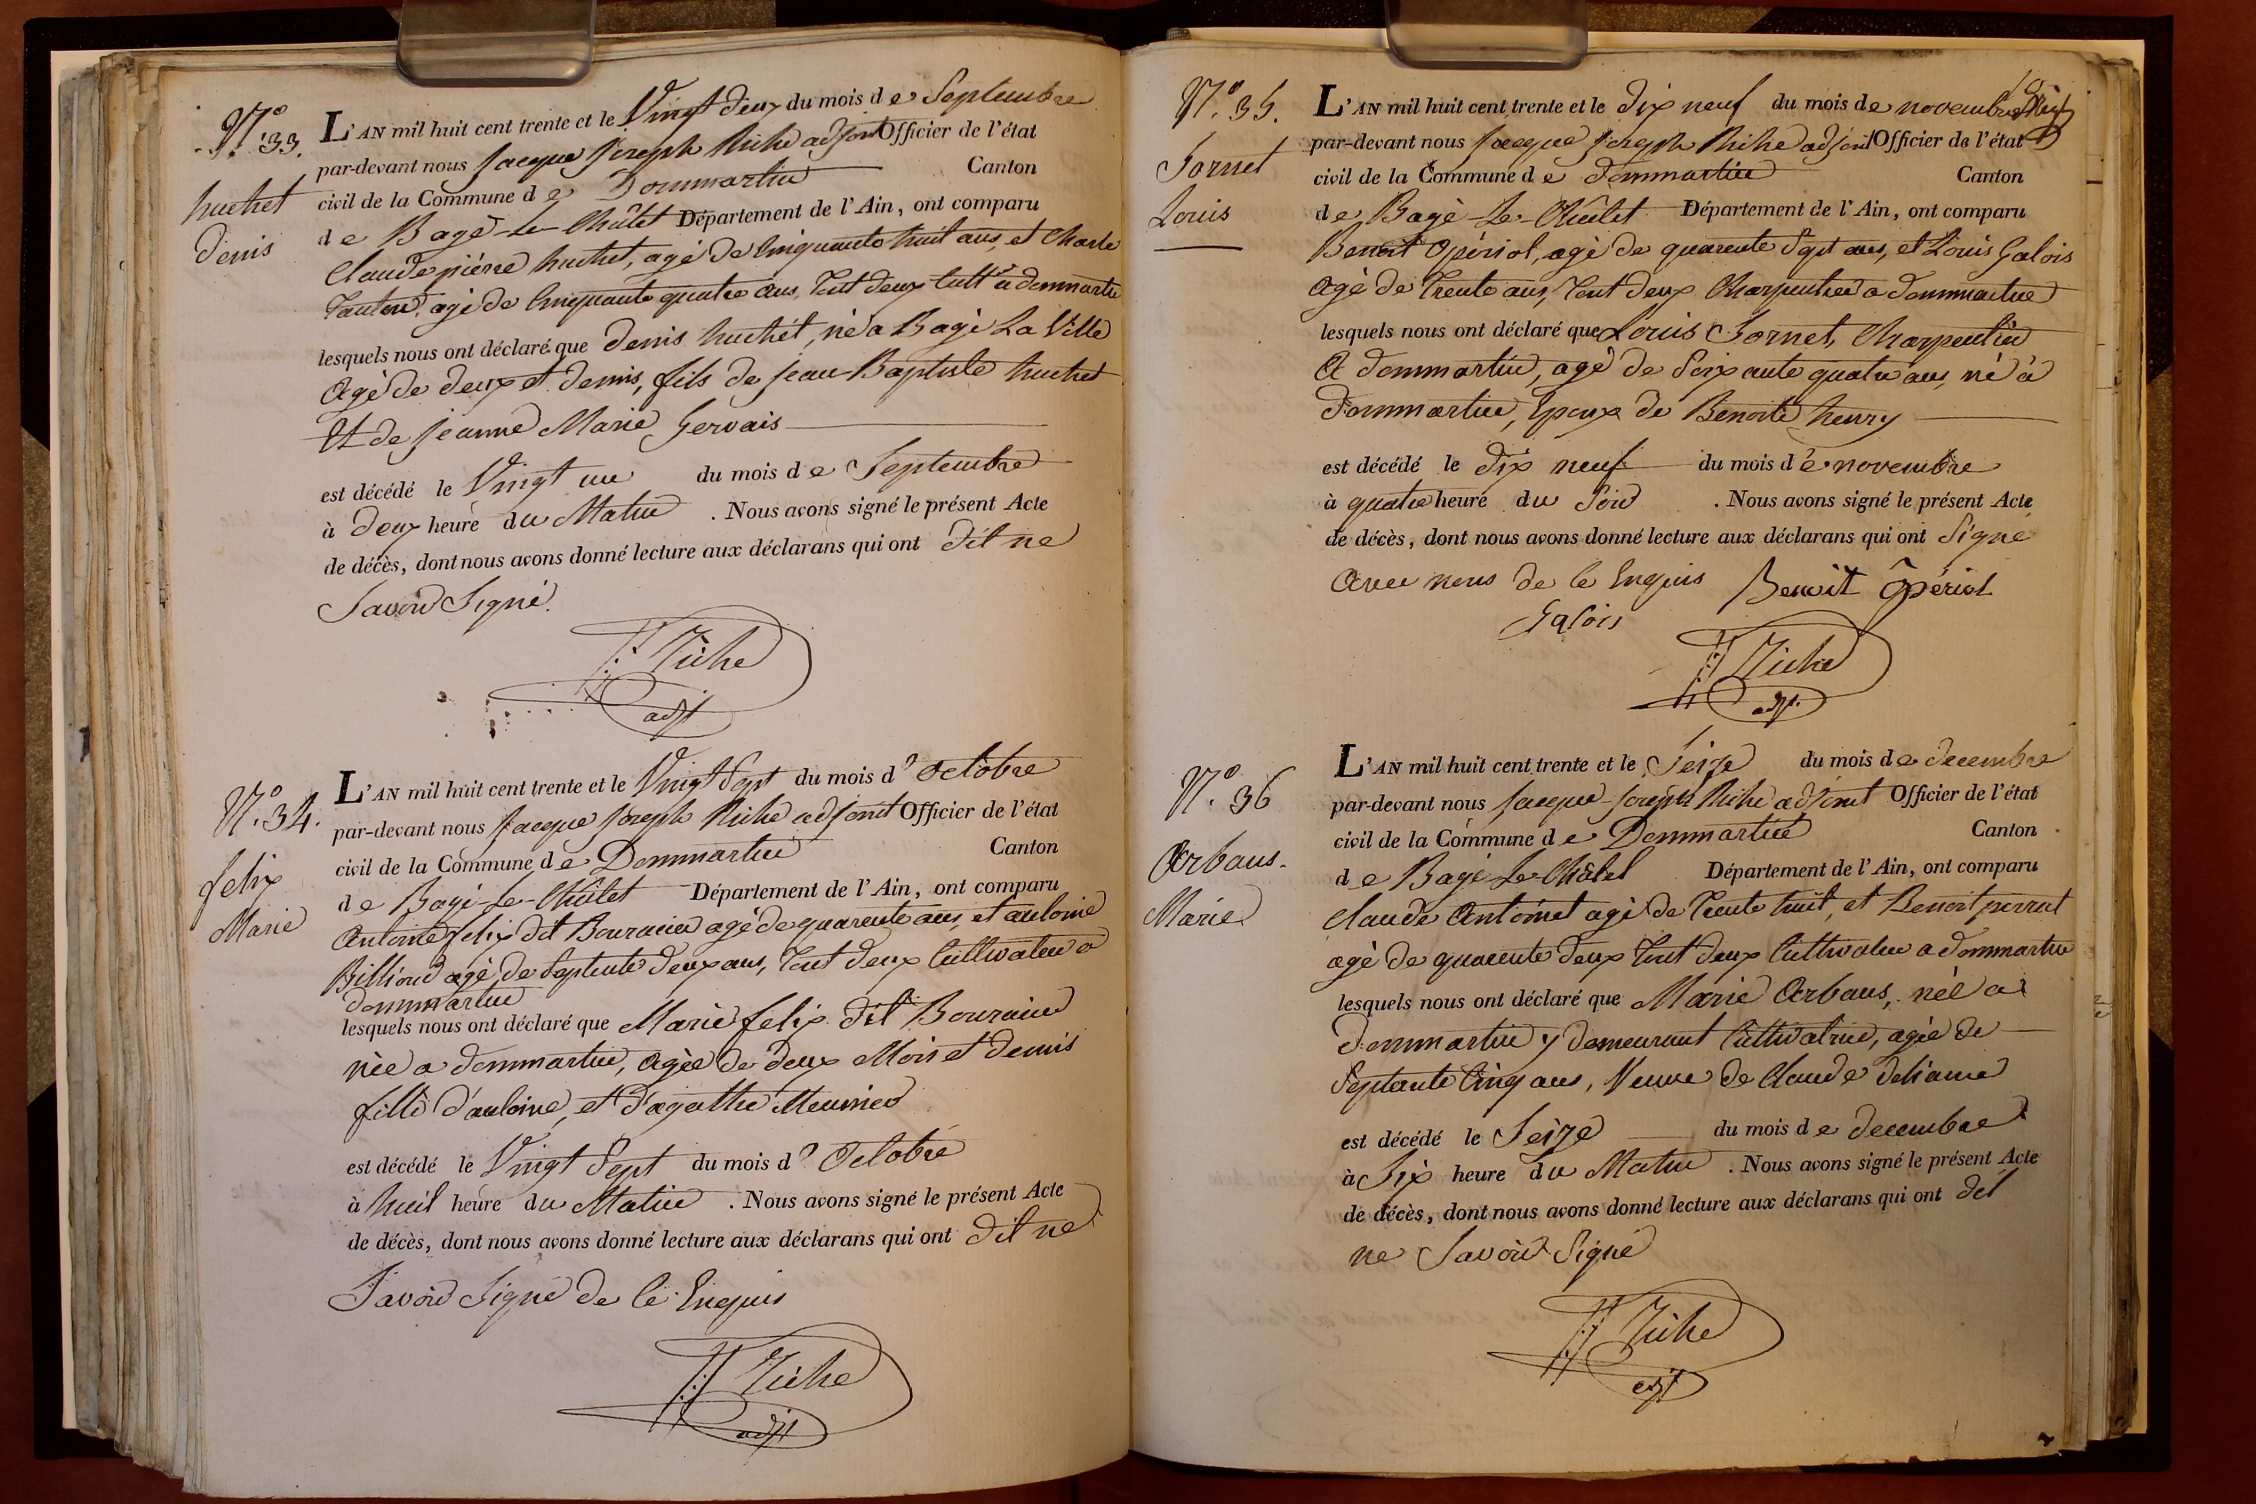 N.° 33.
huchet
denis
L'AN mil huit cent trente et le Vingt deux du mois de Septembre
par-devant nous Jacque Joseph Riche adjoint Officier de l'état
civil de la Commune de Dommartin Canton
de Bagé-le-Châtel Département de l'Ain, ont comparu
Claude piérre huchet, agé de Cinquante huit ans, et Charle
agé de Cinquante quatre ans, tout deux Cultr a dommartin
lesquels nous ont déclaré que denis huchet, né a Bagé La Ville
agé de deux et demis, fils de jean Baptiste huchet
Et de jeanne Marie Gervais
est décédé le Vingt un du mois de Septembre
à deux heure du Matin . Nous avons signé le présent Acte
de décès, dont nous avons donné lecture aux déclarans qui ont dit ne
Savoir Signé.
JJ Riche
adjt
N.° 34.
felix
Marie
L'AN mil huit cent trente et le Vingt Sept du mois d'octobre
par-devant nous Jacque Joseph Riche adjoint Officier de l'état
civil de la Commune de Dommartin Canton
de Bagé-Le-Châtel Département de l'Ain, ont comparu
Antoine felix dit Bourcier agé de quarente ans, et antoine
Billioud agé de Septente deux ans, tout deux Cultivateur a
dommartin
lesquels nous ont déclaré que Marie felix dit Bourcier
née a dommartin, agée de deux Mois et demis
fille d'antoine, et d'agathe Meunier
est décédé le Vingt Sept du mois d'Octobre
à huit heure du Matin . Nous avons signé le présent Acte
de décès, dont nous avons donné lecture aux déclarans qui ont dit ne
Savoir Signé de Ce Enquis
JJ Riche
adjt
N.° 35.
Fornet
Louis
L'AN mil huit cent trente et le dix neuf du mois de novembre
par-devant nous Jacque Joseph Riche adjoint Officier de l'état
civil de la Commune de dommartin Canton
de Bagé-Le-Châtel Département de l'Ain, ont comparu
Benoit Opériol, agé de quarente Sept ans, et Louis Galois
agé de trente ans, tout deux Charpentier a dommartin
lesquels nous ont déclaré que Louis Fornet, Charpentier
a dommartin, agé de Soixante quatre ans, né à
dommartin, Epoux de Benoite henry
est décédé le dix neuf du mois de novembre
à quatre heure du Soir . Nous avons signé le présent Acte
de décès, dont nous avons donné lecture aux déclarans qui ont Signé
avec nous de Ce Enquis Benoit Opériol
Galois
JJ Riche
adjt.
N.° 36
Arbans.
Marie
L'AN mil huit cent trente et le Seize du mois de decembre
par-devant nous Jacque Joseph Riche adjoint Officier de l'état
civil de la Commune de Dommartin Canton
de Bagé Le Châtel Département de l'Ain, ont comparu
Claude Antoinet agé de trente huit, et Benoit perrat
agé de quarente deux tout deux Cultivateur a dommartin
lesquels nous ont déclaré que Marie Arbans, née a
dommartin y demeurant Cultivatrice, agée de
Septante Cinq ans, Veuve de Claude
est décédé le Seize du mois de decembre
à Six heure du Matin . Nous avons signé le présent Acte
de décès, dont nous avons donné lecture aux déclarans qui ont dit
ne Savoir Signé
JJ Riche
adjt